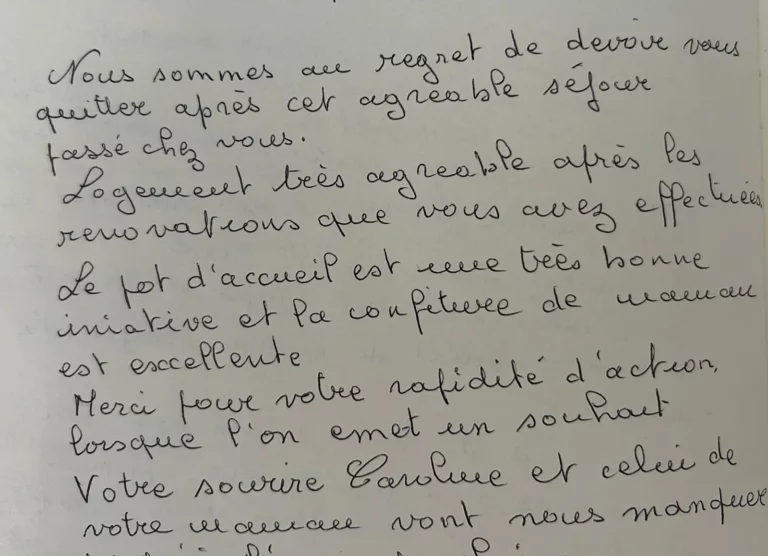 Nous sommes au regret de devoir vous
quitter après cet agreable séjour
passé chez vous.
Logement très agreable après les
renovations que vous avez effectuées
Le pot d'accueil est une très bonne
iniative et la confiture de maman
est excellente
Merci pour votre rapidité d'action,
lorsque l'on emet un souhait
Votre sourire Caroline et celui de
votre maman vont nous manquer